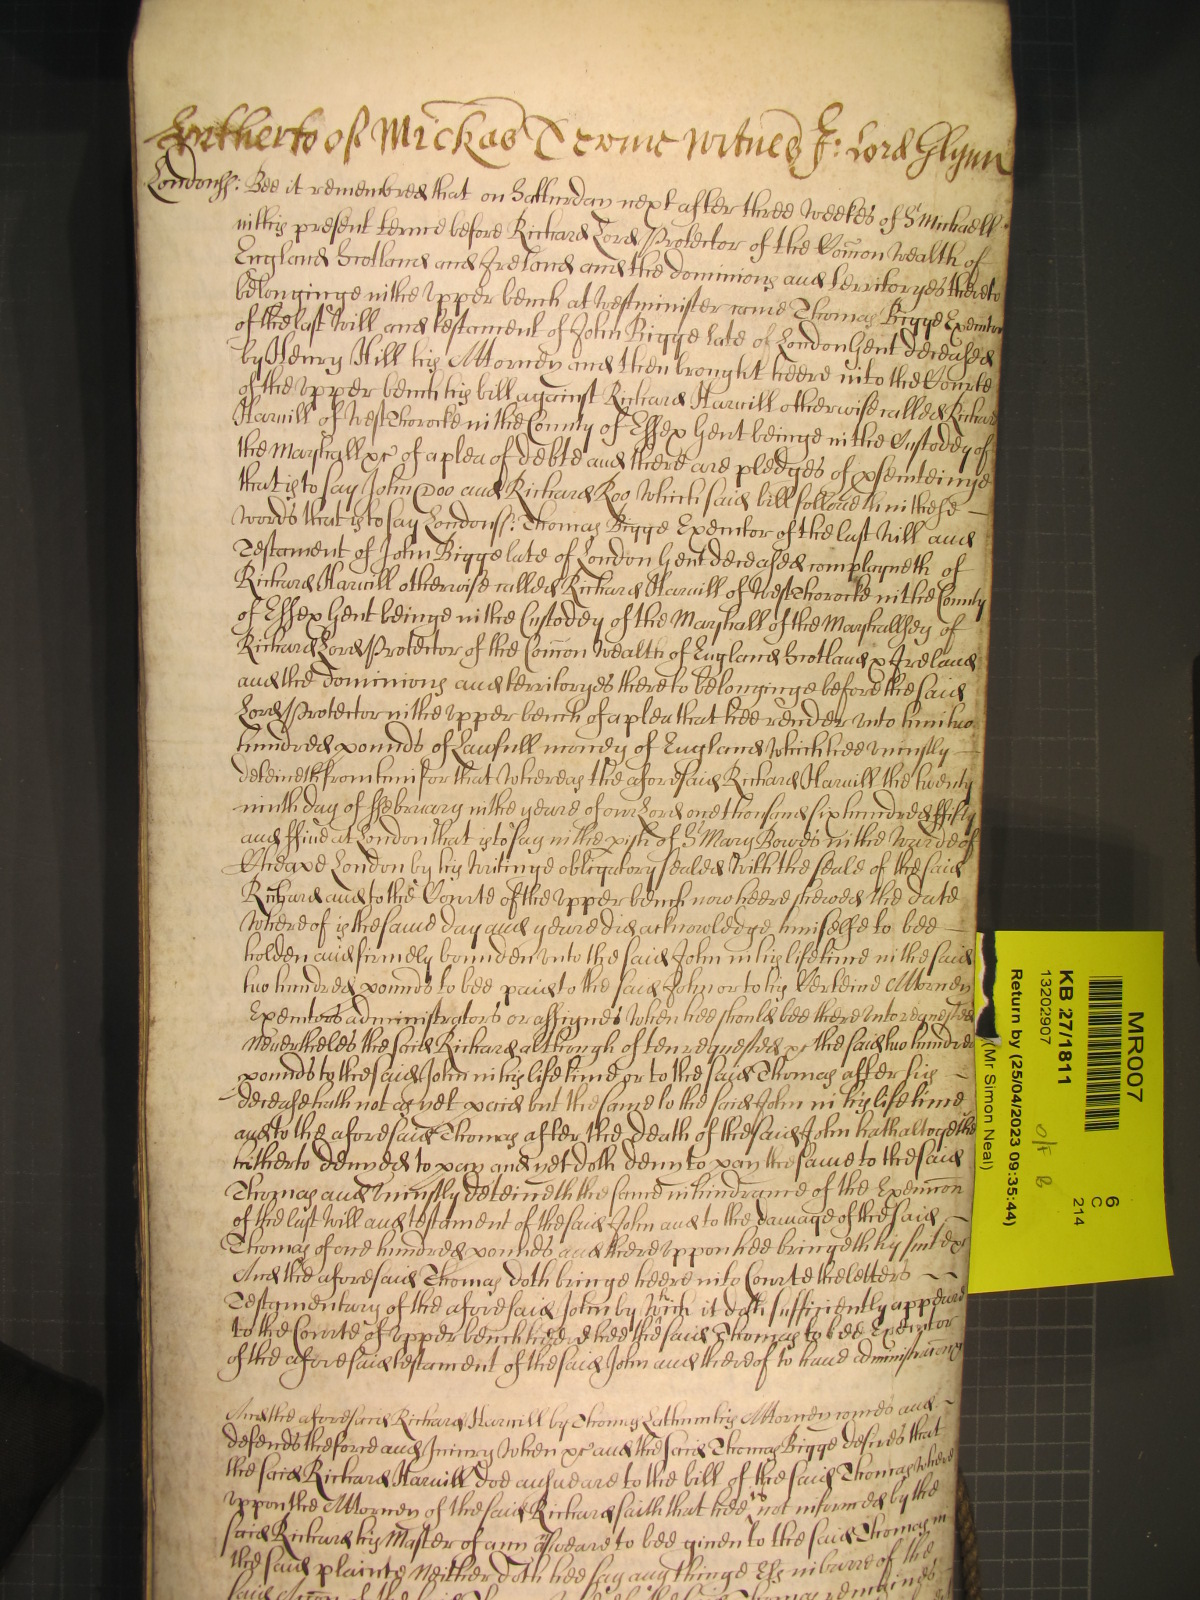 Hitherto of Mickas Terme Witnes J: Lord Glynn
Londonss: Bee it remembred that on Satturday next after three weekes of St Michaell
in this present terme before Richard Lord Protector of the Com̄on wealth of
England Scotland and Ireland and the dominions and territoryes thereto
belonginge in the Upper bench at Westminister came Thomas Bigge Executor
of the last Will and testament of John Bigge late of London Gent deceased
by Henry Hill his Attorney and then brought heere into the Courte
of the Upper bench his bill against Richard Harvill otherwise called Richard
Harvill of West Thorocke in the County of Essex Gent beinge in the Custodey of
the Marshall &c of a plea of debte and there are pledges of psenteinge
that is to say John Doo and Richard Roo which said bill followeth in these
words that is to say Londonss: Thomas Bigge Executor of the last Will and
Testament of John Bigge late of London Gent deceased complayneth of
Richard Harvill otherwise called Richard Harvill of West Thorocke in the County
of Essex Gent beinge in the Custodey of the Marshall of the Marshallsey of
Richard Lord Protector of the Com̄on Wealth of England Scotland & Ireland
and the dominions and territoryes thereto belonginge before the said
Lord Protector in the Upper bench of a plea that hee render unto him two
hundred pounds of Lawfull money of England which hee uniustly
deteineth from him for that Whereas the aforesaid Richard Harvill the twenty
ninth day of ffebruary in the yeare of our Lord one thousand six hundred ffifty
and ffive at London that is to say in the pish of St Mary Bowes in the Warde of
Cheape London by his writinge obligatory sealed with the seale of the said
Richard and to the Courte of the Upper bench now heere shewed the date
whereof is the same day and yeare did acknowledge himselfe to bee
holden and firmely bounden unto the said John in his life time in the said
two hundred pounds to bee paid to the said John or to his Certeine Attorney
Executors administrators or assignes when hee should bee thereunto requested
Neverthelesse the said Richard although often requested &c the said two hundred
pounds to the said John in his life time or to the said Thomas after his
decease hath not as yet paid but the same to the said John in his life time
and to the aforesaid Thomas after the death of the said John hath altogether
hitherto denyed to pay and yet doth deny to pay the same to the said
Thomas and uniustly deteineth the same in hindrance of the Execucōn
of the last Will and testament of the said John and to the damage of the said
Thomas of one hundred pounds and thereuppon hee bringeth his suite &c
And the aforesaid Thomas doth bringe heere into Courte the letters
Testamentary of the aforesaid John by which it doth sufficiently appeare
to the Courte of Upper bench heere hee the said Thomas to bee Executor
of the aforesaid testament of the said John and thereof to have administracōn &c
And the aforesaid Richard Harvill by Thomas Lathum his Attorney comes and
defends the force and Iniury when &c and the said Thomas Bigge desires that
the said Richard Harvill doe answeare to the bill of the said Thomas where
uppon the Attorney of the said Richard saith that hee is not informed by the
said Richard his Master of any answeare to bee given to the said Thomas in
the said plainte Neither doth hee say any thinge Els in barre of the
said Accōn
MR007
KB 27/1811
13202907
Return by (25/04/2023 09:35:44)
(Mr Simon Neal)
6
C
214